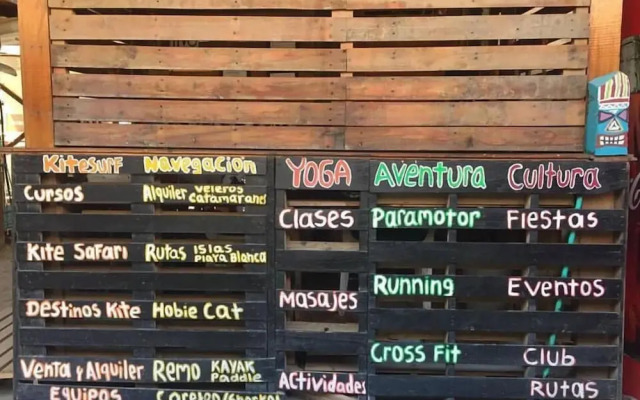 Kitesurf Navegación YOGA Aventura Cultura
Cursos
Alquiler Veleros
Catamaranes
Clases Paramotor Fiestas
Kite Safari Rutas Islas
Playa Blanca
Running Eventos
Masajes
Destinos Kite Hobie Cat
Cross Fit Club
Venta y Alquiler
Equipos
Remo KAYAK
Paddle
Actividades
Rutas